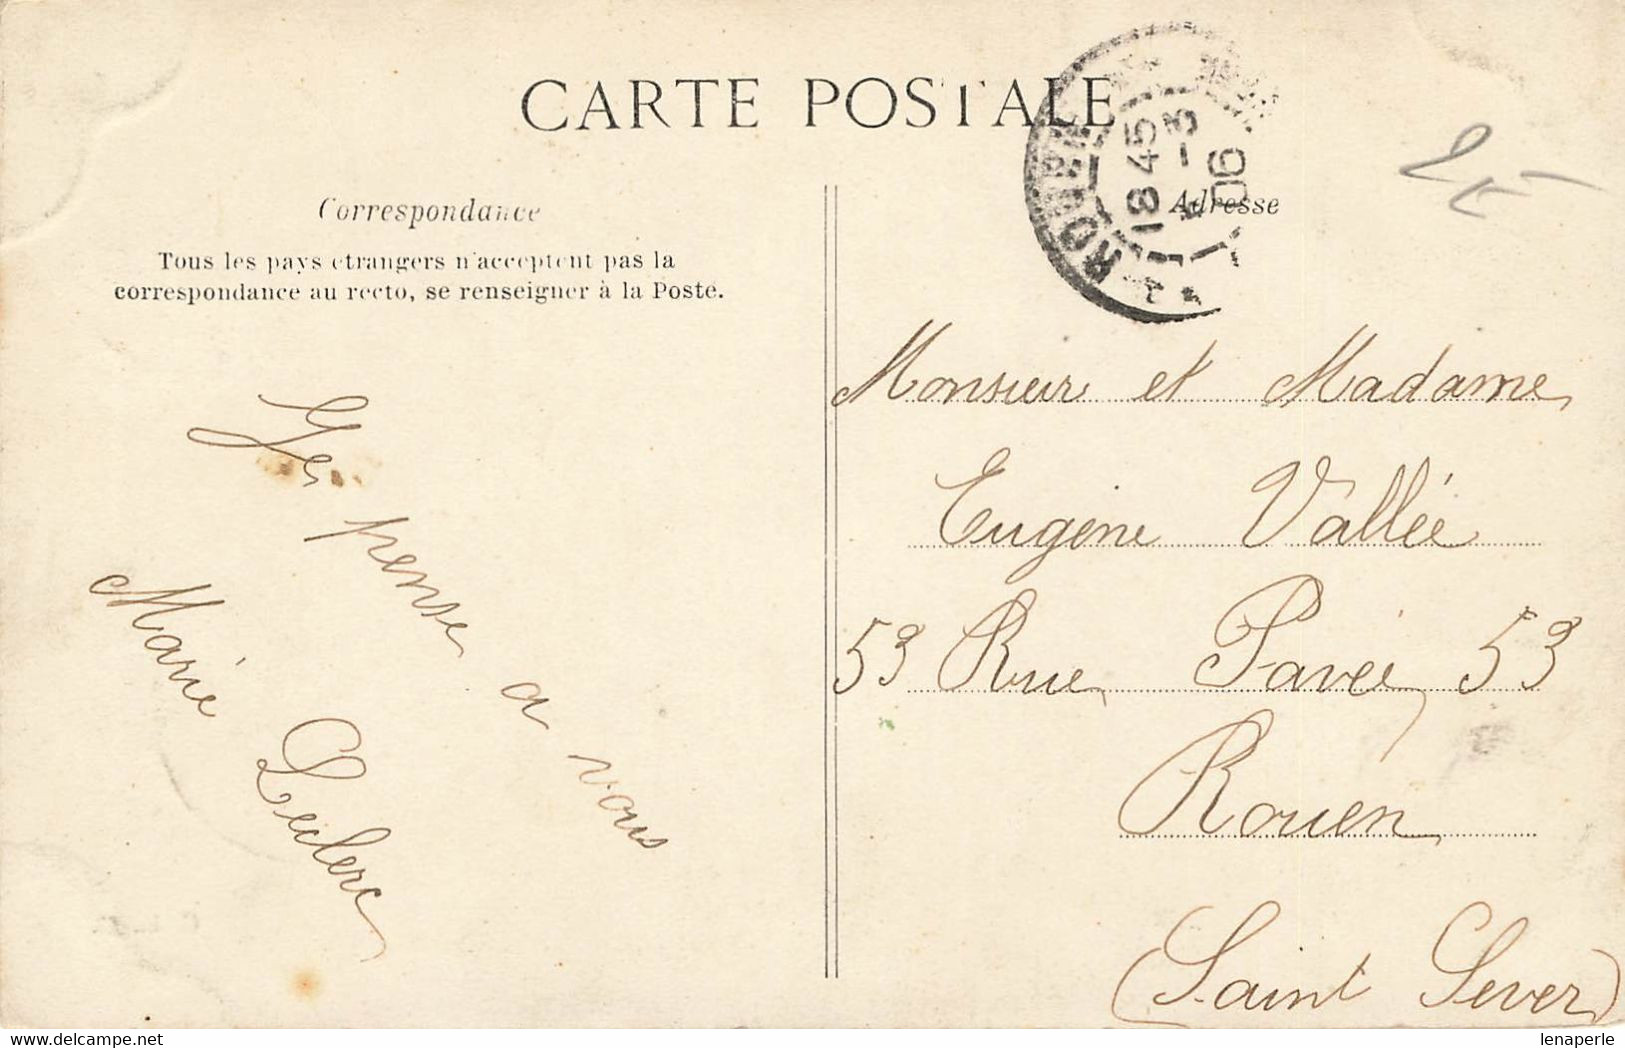 CARTE POSTALE
Correspondance
Tous les pays étrangers n'acceptent pas la
correspondance au recto, se renseigner à la Poste.
Adresse
ROUEN
18 45
5 - 3
06
Je pense a vous
Marie Leclerc
Monsieur et Madame
Eugène Vallée
53 Rue Pavée 53
Rouen
(Saint Sever)
lenaperle